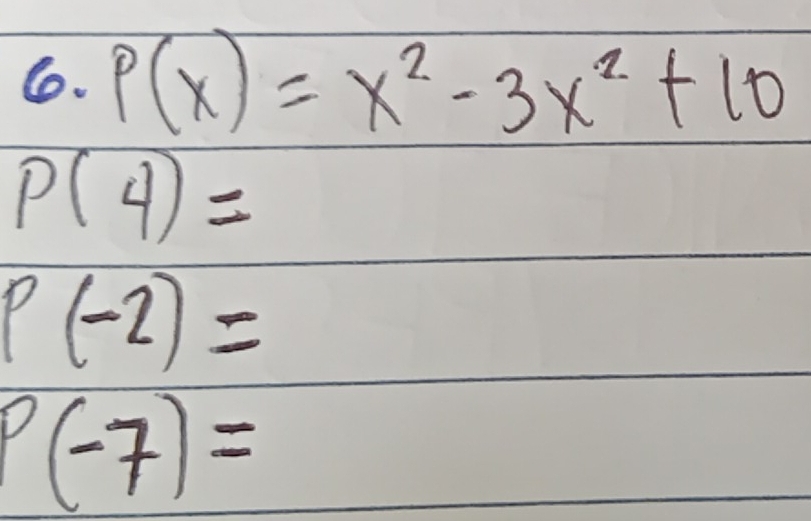 6. P(x) = x² - 3x² + 10
P(4) =
P(-2) =
P(-7) =